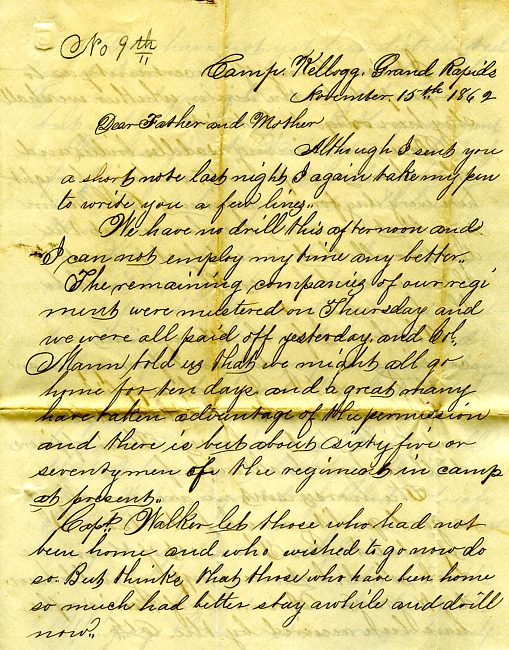 No 9th
Camp. Kellogg. Grand Rapids
November. 15th. 1862
Dear Father and Mother
Although I sent you
a short note last night, I again take my pen
to write you a few lines..
We have no drill this afternoon and
I can not employ my time any better..
The remaining companies of our regi
ment were mustered on Thursday and
we were all paid off yesterday. and Col.
Mann told us that we might all go
home for ten days. and a great many
have taken advantage of the permission
and there is but about sixty five or
seventy men of the regiment in camp
at present..
Capt. Walker let those who had not
been home and who wished to go now do
so. But thinks that those who have been home
so much had better stay awhile and drill
now..